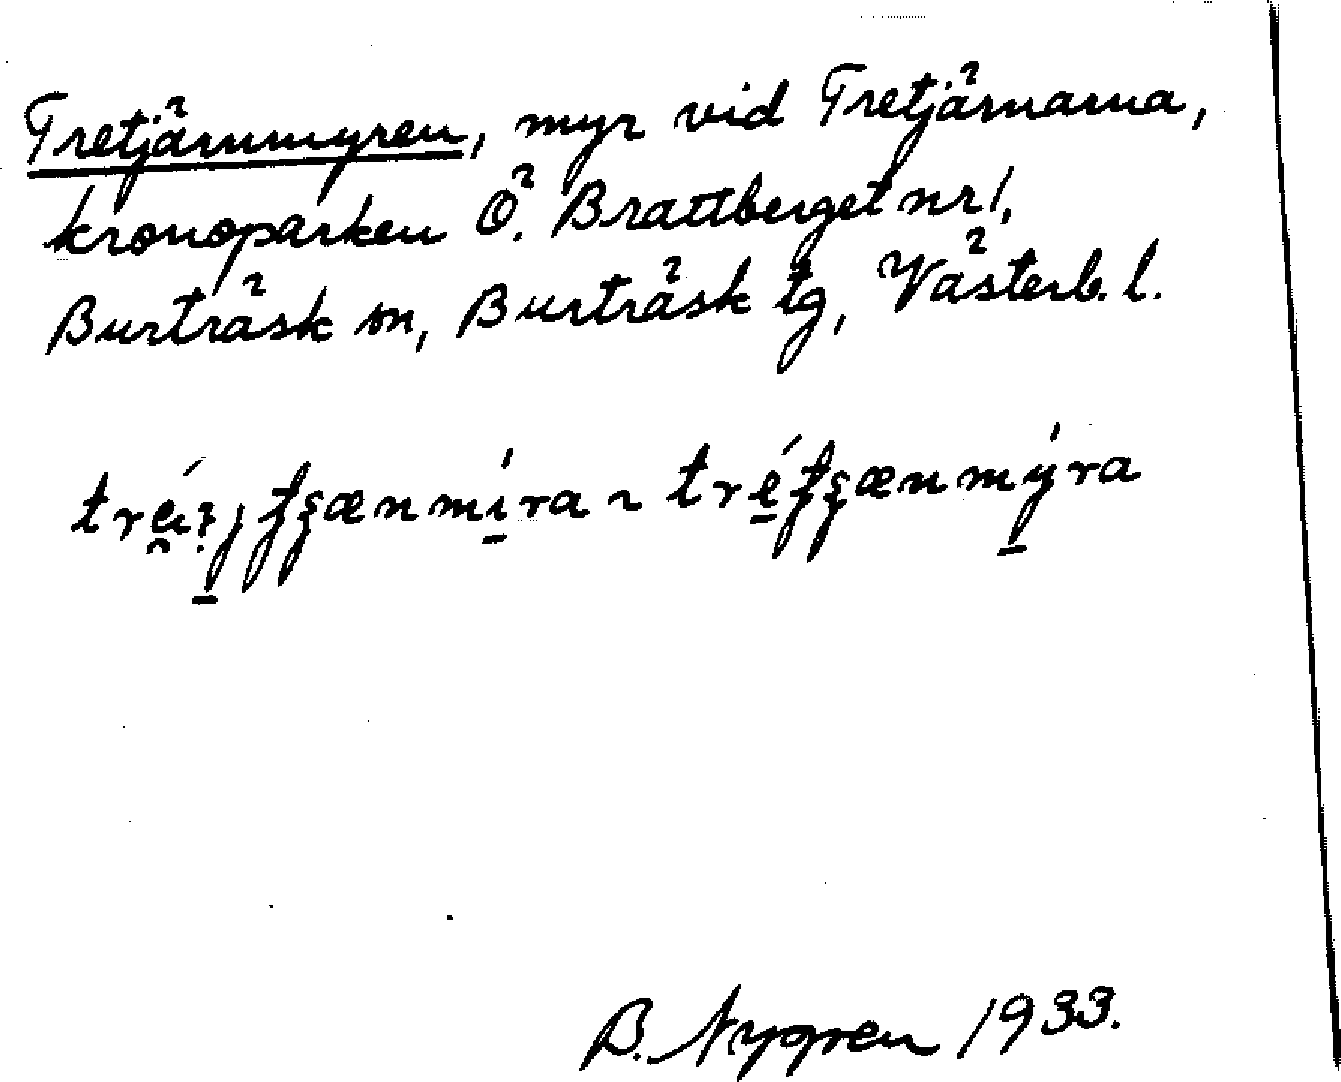 Tretjärnmyren, myr vid Tretjärnarna,
kronoparken Ö. Brattberget nr 1,
Burträsk sn, Burträsk tg, Västerb. l.
B. Nygren 1933.